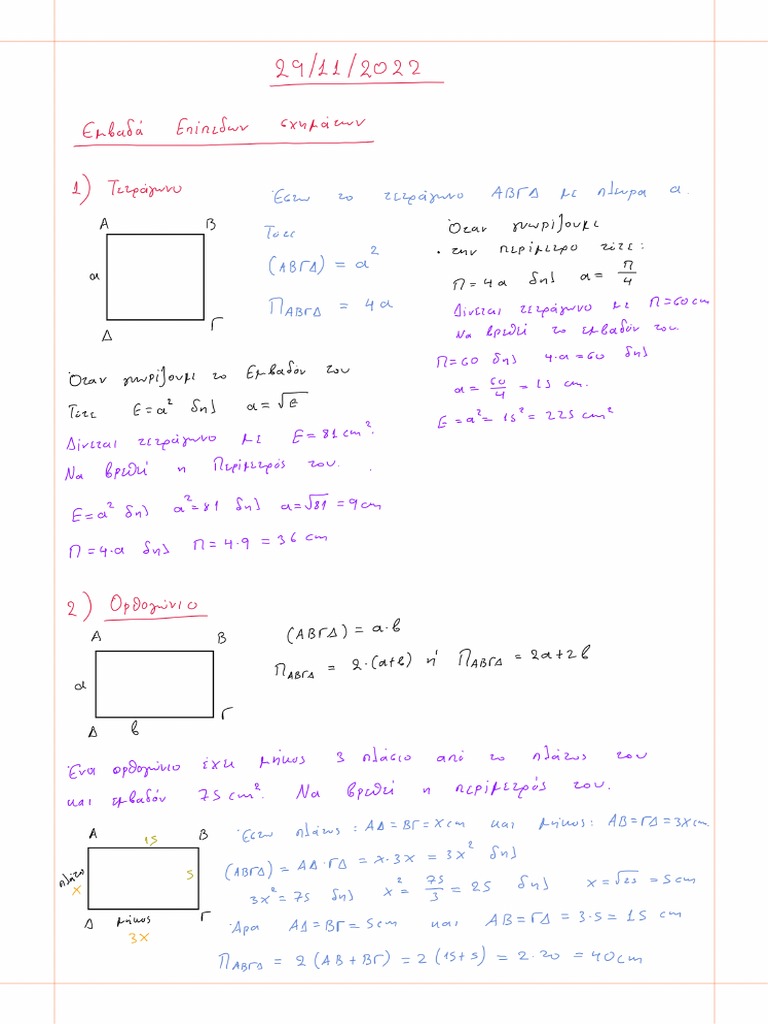 29/11/2022
Εμβαδά Επίπεδων σχημάτων
1) Τετράγωνο
Α Β
α
Δ Γ
Έστω το τετράγωνο ΑΒΓΔ με πλευρα α.
Τότε
(ΑΒΓΔ) = α²
Π_ΑΒΓΔ = 4α
Όταν γνωρίζουμε
• την περίμετρο τότε:
Π = 4α δηλ α = Π/4
Δίνεται τετράγωνο με Π = 60 cm
Να βρεθεί το εμβαδόν του.
Π = 60 δηλ 4·α = 60 δηλ
α = 60/4 = 15 cm.
Ε = α² = 15² = 225 cm²
Όταν γνωρίζουμε το Εμβαδόν του
Τότε Ε = α² δηλ α = √Ε
Δίνεται τετράγωνο με Ε = 81 cm².
Να βρεθεί η Περίμετρός του.
Ε = α² δηλ α² = 81 δηλ α = √81 = 9 cm
Π = 4·α δηλ Π = 4·9 = 36 cm
2) Ορθογώνιο
Α Β
α
Δ β Γ
(ΑΒΓΔ) = α·β
Π_ΑΒΓΔ = 2·(α+β) ή Π_ΑΒΓΔ = 2α+2β
Ένα ορθογώνιο έχει μήκος 3 πλάσιο από το πλάτος του
και εμβαδόν 75 cm². Να βρεθεί η περίμετρός του.
Α 15 Β
πλάτος x 5
Δ μήκος Γ
3x
Έστω πλάτος: ΑΔ = ΒΓ = x cm και μήκος: ΑΒ = ΓΔ = 3x cm.
(ΑΒΓΔ) = ΑΔ·ΓΔ = x·3x = 3x² δηλ
3x² = 75 δηλ x² = 75/3 = 25 δηλ x = √25 = 5 cm
Άρα ΑΔ = ΒΓ = 5 cm και ΑΒ = ΓΔ = 3·5 = 15 cm
Π_ΑΒΓΔ = 2(ΑΒ + ΒΓ) = 2(15+5) = 2·20 = 40 cm